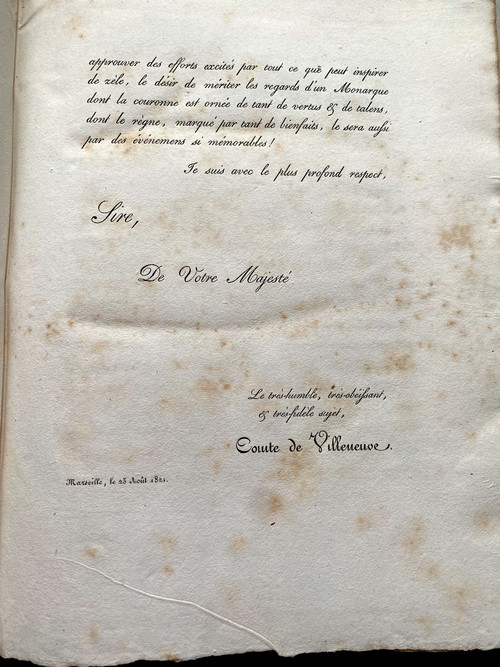 approuver des efforts excités par tout ce que peut inspirer
de zèle, le désir de mériter les regards d'un Monarque
dont la couronne est ornée de tant de vertus & de talens,
dont le règne, marqué par tant de bienfaits, le sera aussi
par des événemens si mémorables!
Je suis avec le plus profond respect,
Sire,
De Votre Majesté
Le très-humble, très-obéissant,
& très-fidèle sujet,
Comte de Villeneuve.
Marseille, le 25 Août 1821.